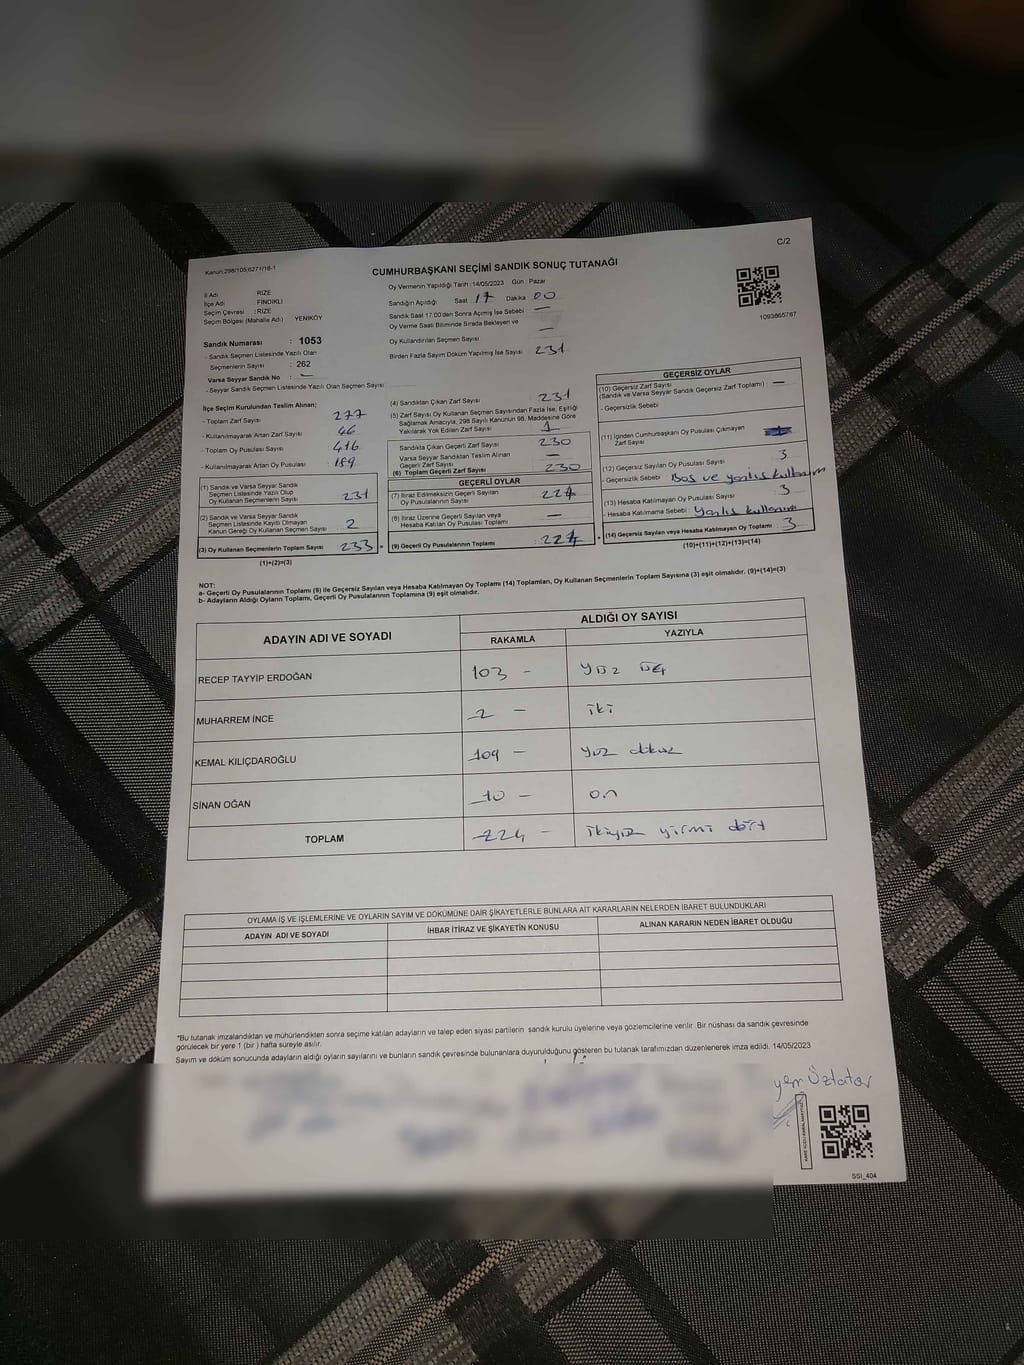 C/2
Kanun:298/105;6271/18-1
CUMHURBAŞKANI SEÇİMİ SANDIK SONUÇ TUTANAĞI
İl Adı : RİZE
İlçe Adı : FINDIKLI
Seçim Çevresi : RİZE
Seçim Bölgesi (Mahalle Adı) : YENİKÖY
Sandık Numarası : 1053
- Sandık Seçmen Listesinde Yazılı Olan
Seçmenlerin Sayısı : 262
Varsa Seyyar Sandık No : —
- Seyyar Sandık Seçmen Listesinde Yazılı Olan Seçmen Sayısı
Oy Vermenin Yapıldığı Tarih : 14/05/2023 Gün : Pazar
Sandığın Açıldığı Saat 17 Dakika 00
Sandık Saat 17.00'den Sonra Açılmış İse Sebebi —
Oy Verme Saati Bitiminde Sırada Bekleyen ve
Oy Kullandırılan Seçmen Sayısı —
Birden Fazla Sayım Döküm Yapılmış İse Sayısı 231
1093865767
İlçe Seçim Kurulundan Teslim Alınan;
- Toplam Zarf Sayısı : 277
- Kullanılmayarak Artan Zarf Sayısı : 46
- Toplam Oy Pusulası Sayısı : 416
- Kullanılmayarak Artan Oy Pusulası :
(1) Sandık ve Varsa Seyyar Sandık
Seçmen Listesinde Yazılı Olup
Oy Kullanan Seçmenlerin Sayısı 231
(2) Sandık ve Varsa Seyyar Sandık
Seçmen Listesinde Kayıtlı Olmayan
Kanun Gereği Oy Kullanan Seçmen Sayısı 2
(3) Oy Kullanan Seçmenlerin Toplam Sayısı 233
(1)+(2)=(3)
(4) Sandıktan Çıkan Zarf Sayısı 231
(5) Zarf Sayısı Oy Kullanan Seçmen Sayısından Fazla İse, Eşitliği
Sağlamak Amacıyla, 298 Sayılı Kanunun 98. Maddesine Göre
Yakılarak Yok Edilen Zarf Sayısı 1
Sandıkta Çıkan Geçerli Zarf Sayısı 230
Varsa Seyyar Sandıktan Teslim Alınan
Geçerli Zarf Sayısı —
(6) Toplam Geçerli Zarf Sayısı 230
GEÇERLİ OYLAR
(7) İtiraz Edilmeksizin Geçerli Sayılan
Oy Pusulalarının Sayısı 224
(8) İtiraz Üzerine Geçerli Sayılan veya
Hesaba Katılan Oy Pusulası Toplamı —
= (9) Geçerli Oy Pusulalarının Toplamı : 224
GEÇERSİZ OYLAR
(10) Geçersiz Zarf Sayısı
(Sandık ve Varsa Seyyar Sandık Geçersiz Zarf Toplamı) —
- Geçersizlik Sebebi
(11) İçinden Cumhurbaşkanı Oy Pusulası Çıkmayan
Zarf Sayısı
(12) Geçersiz Sayılan Oy Pusulası Sayısı 3
- Geçersizlik Sebebi : Boş ve yanlış kullanım
(13) Hesaba Katılmayan Oy Pusulası Sayısı 3
- Hesaba Katılmama Sebebi : Yanlış kullanım
+ (14) Geçersiz Sayılan veya Hesaba Katılmayan Oy Toplamı 3
(10)+(11)+(12)+(13)=(14)
NOT:
a- Geçerli Oy Pusulalarının Toplamı (9) ile Geçersiz Sayılan veya Hesaba Katılmayan Oy Toplamı (14) Toplamları, Oy Kullanan Seçmenlerin Toplam Sayısına (3) eşit olmalıdır. (9)+(14)=(3)
b- Adayların Aldığı Oyların Toplamı, Geçerli Oy Pusulalarının Toplamına (9) eşit olmalıdır.
ADAYIN ADI VE SOYADI
ALDIĞI OY SAYISI
RAKAMLA YAZIYLA
RECEP TAYYİP ERDOĞAN 103 - yüz üç
MUHARREM İNCE 2 - iki
KEMAL KILIÇDAROĞLU 109 - yüz dokuz
SİNAN OĞAN 10 - on
TOPLAM 224 - ikiyüz yirmi dört
OYLAMA İŞ VE İŞLEMLERİNE VE OYLARIN SAYIM VE DÖKÜMÜNE DAİR ŞİKAYETLERLE BUNLARA AİT KARARLARIN NELERDEN İBARET BULUNDUKLARI
ADAYIN ADI VE SOYADI İHBAR İTİRAZ VE ŞİKAYETİN KONUSU ALINAN KARARIN NEDEN İBARET OLDUĞU
*Bu tutanak imzalandıktan ve mühürlendikten sonra seçime katılan adayların ve talep eden siyasi partilerin sandık kurulu üyelerine veya gözlemcilerine verilir. Bir nüshası da sandık çevresinde
görülecek bir yere 1 (bir ) hafta süreyle asılır.
Sayım ve döküm sonucunda adayların aldığı oyların sayılarını ve bunların sandık çevresinde bulunanlara duyurulduğunu gösteren bu tutanak tarafımızdan düzenlenerek imza edildi. 14/05/2023
SSI_404